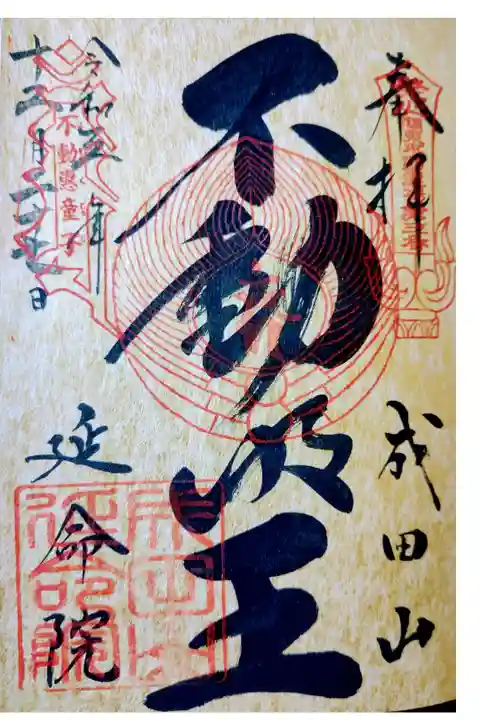 奉拝
成田山
不動明王
令和五年
十二月二十七日
延命院
不動恵童子
成田山
延命院